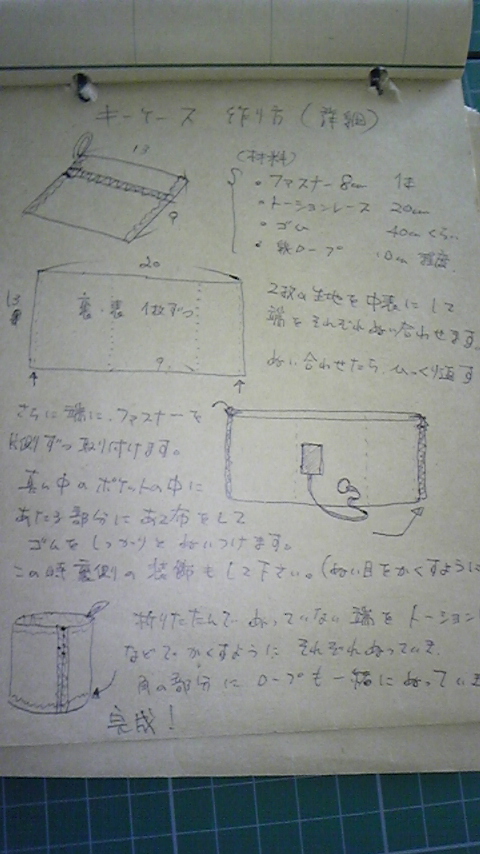 キーケース 作り方 (詳細)
13
9
(材料)
・ファスナー 8cm 1本
・トーションレース 20cm
・ゴム 40cmくらい
・ロープ 10cm 程度
20
13
裏・表 1枚ずつ
9
2枚の生地を中表にして
端をそれぞれぬい合わせます。
ぬい合わせたら、ひっくり返す
さらに端に、ファスナーを
片側ずつ取り付けます。
真ん中のポケットの中に
あたる部分にあて布をして
ゴムをしっかりとぬいつけます。
この時裏側の装飾もして下さい。(ぬい目をかくすように
折りたたんでぬっていない端をトーション
などでかくすようにそれぞれぬっていき
角の部分にロープも一緒にぬっていき
完成!